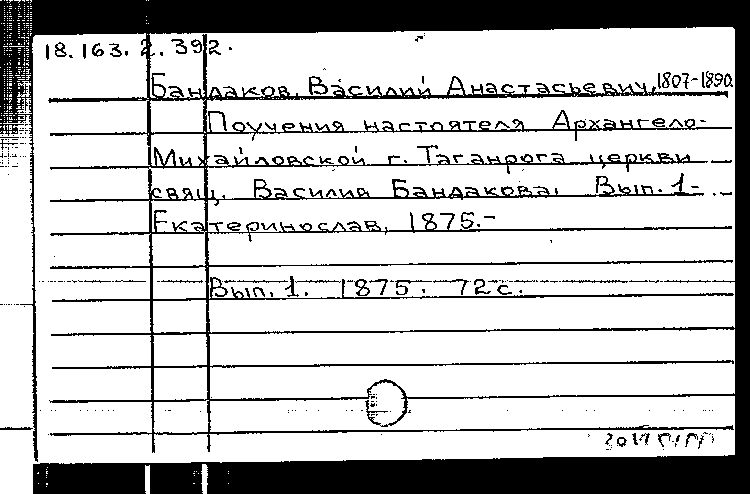 18.163.2.392.
Бандаков, Василий Анастасьевич, 1807-1890.
Поучения настоятеля Архангело-
Михайловской г. Таганрога церкви
свящ. Василия Бандакова. Вып. 1-
Екатеринослав, 1875.-
Вып. 1. 1875. 72 с.